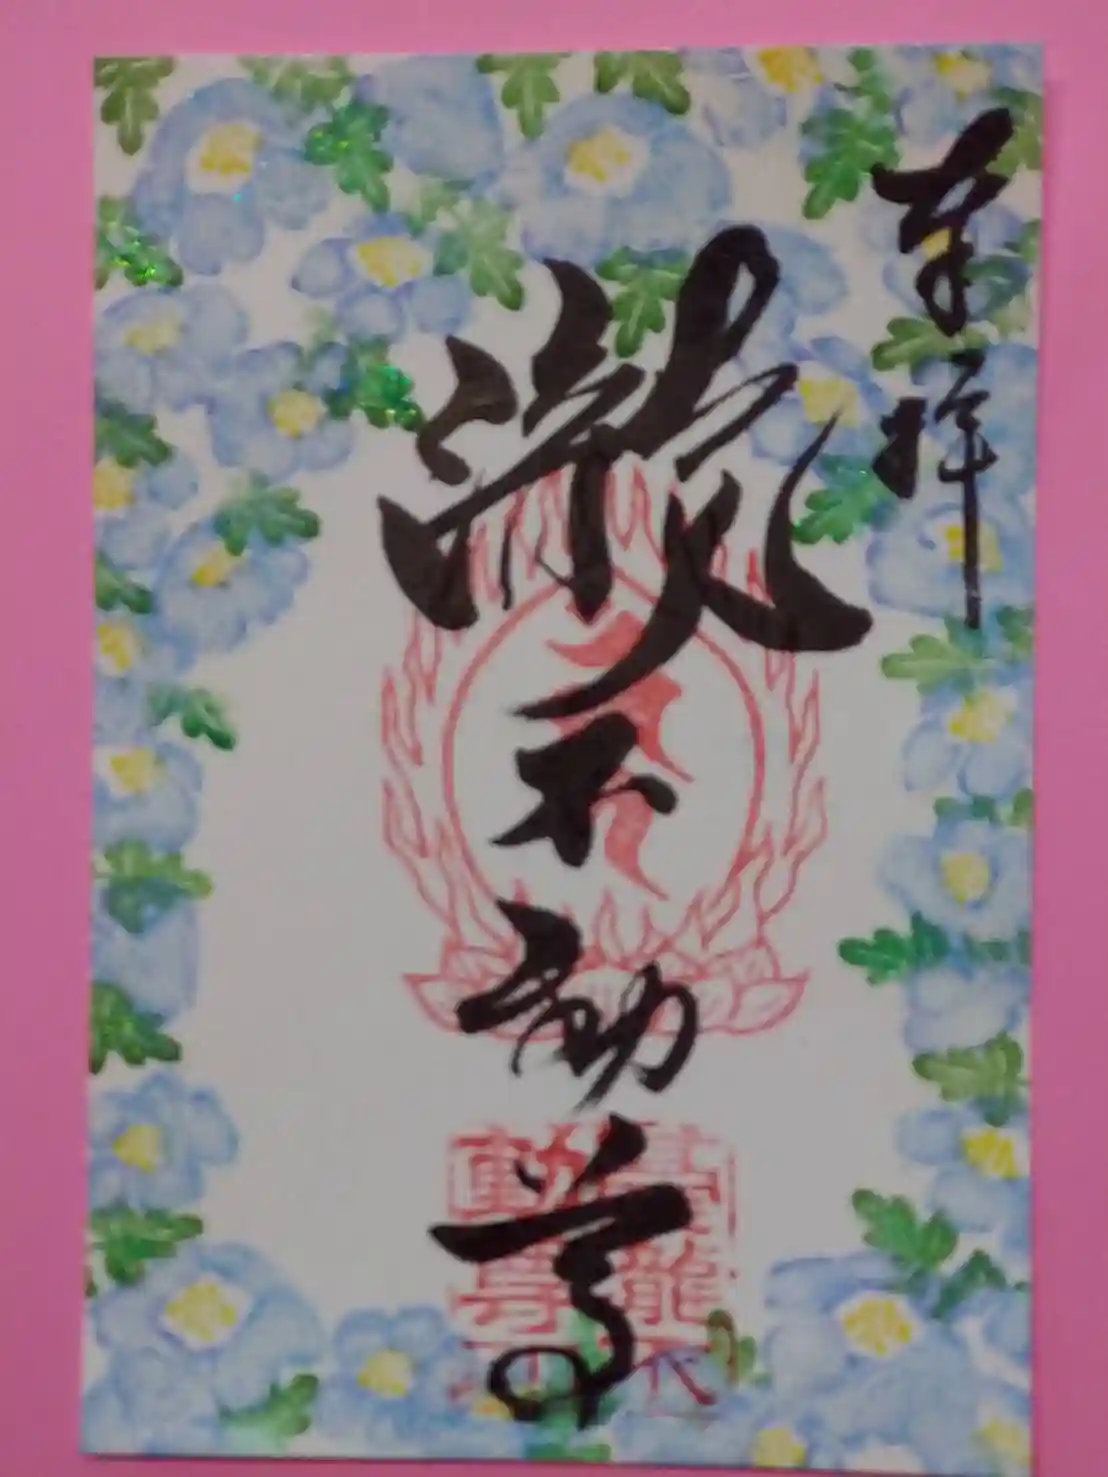 奉拝
瀧不動尊